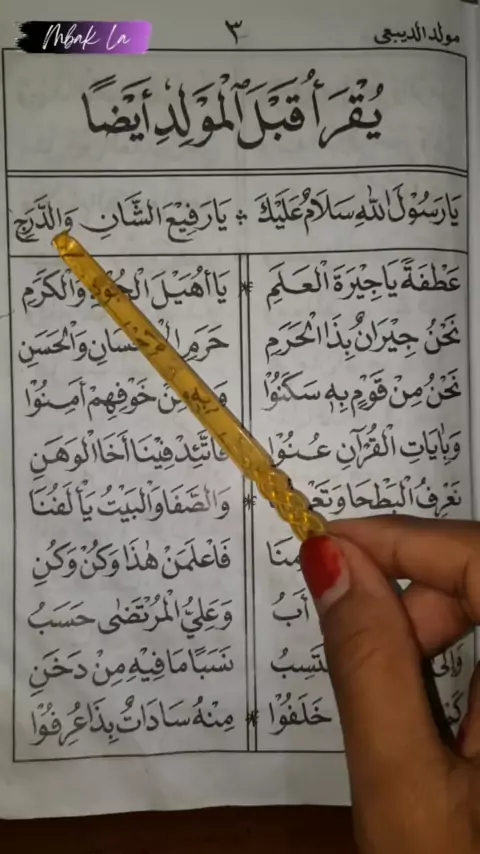 Mbak La
مولد الديبعي ٣
يُقْرَأُ قَبْلَ الْمَوْلِدِ أَيْضًا
يَارَسُوْلَ اللهِ سَلَامٌ عَلَيْكَ * يَارَفِيْعَ الشَّانِ وَالدَّرَجِ
عَطْفَةً يَاجِيْرَةَ الْعَلَمِ * يَاأُهَيْلَ الْجُوْدِ وَالْكَرَمِ
نَحْنُ جِيْرَانٌ بِذَا الْحَرَمِ حَرَمِ الْإِحْسَانِ وَالْحَسَنِ
نَحْنُ مِنْ قَوْمٍ بِهِ سَكَنُوْا وَبِهِ مِنْ خَوْفِهِمْ أَمِنُوْا
وَبِاٰيَاتِ الْقُرْاٰنِ عُنُوْا فَاتَّئِدْ فِيْنَا أَخَا الْوَهَنِ
نَعْرِفُ الْبَطْحَا * وَالصَّفَا وَالْبَيْتُ يَأْلَفُنَا
فَاعْلَمَنْ هٰذَا وَكُنْ وَكُنِ
أَبُ وَعَلِيُّ الْمُرْتَضٰى حَسَبُ
نَسَبًا مَا فِيْهِ مِنْ دَخَنِ
خَلَفُوْا * مِنْهُ سَادَاتٌ بِذَا عُرِفُوْا